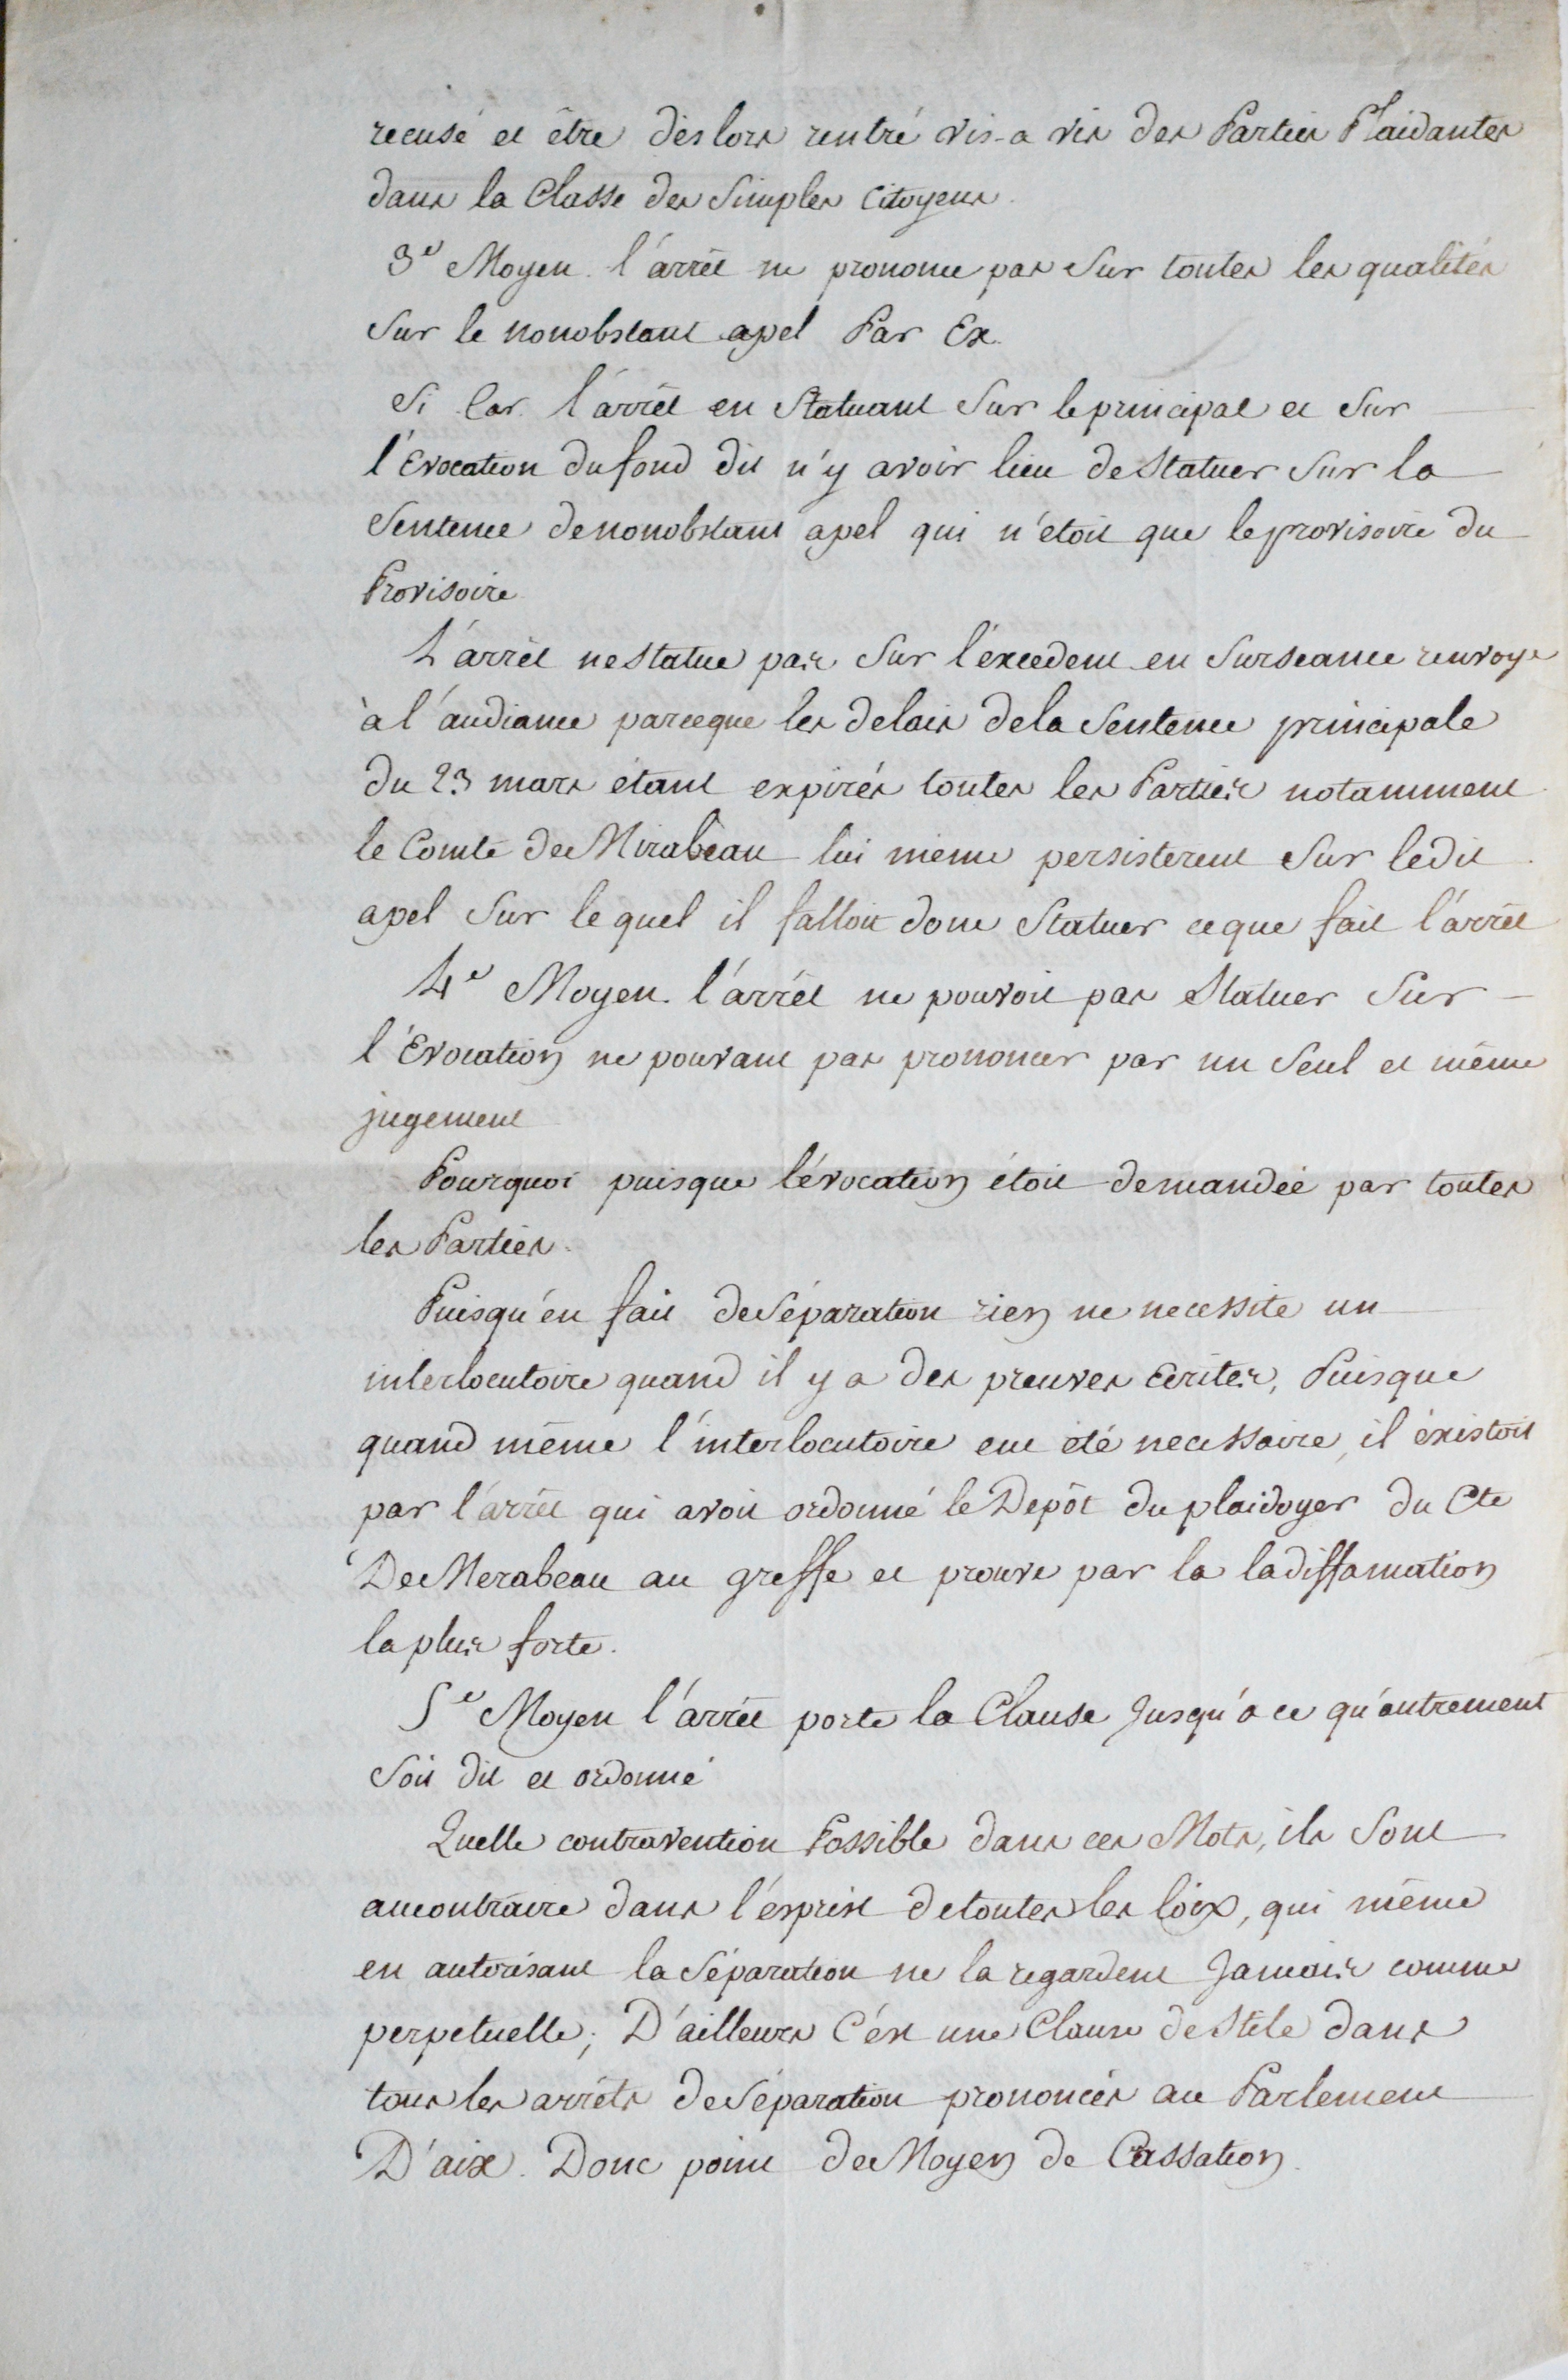 recusé et être dèslors rentré vis-a vis des Parties Plaidantes
dans la Classe des Simples Citoyens.
3e Moyen. l'arrêt ne prononce pas Sur toutes les qualités
Sur le nonobstant apel Par Ex.
Si Car. l'arrêt en Statuant Sur le principal et Sur
l'Evocation du fond dit n'y avoir lieu de Statuer Sur la
Sentence de nonobstant apel qui n'étoit que le provisoire du
Provisoire
L'arrêt ne Statue pas Sur l'excedent en Surseance renvoye
à l'audiance parceque les delais de la Sentence principale
du 23 mars étant expirés toutes les Parties notamment
le Comte de Mirabeau lui meme persisterent Sur ledit
apel Sur le quel il falloit donc Statuer ce que fait l'arrêt
4e Moyen. l'arrêt ne pouvoit pas Statuer Sur
l'Evocation ne pouvant pas prononcer par un Seul et même
jugement
Pourquoi puisque l'évocation étoit demandée par toutes
les Parties.
Puisqu'en fait de Séparation rien ne necessite un
interlocutoire quand il y a des preuves Ecrites, Puisque
quand même l'interlocutoire eut été necessaire, il éxistoit
par l'arrêt qui avoit ordonné le Depôt du plaidoyer du Cte
De Merabeau au greffe et prouve par la la diffamation
la plus forte.
5e Moyen l'arrêt porte la Clause Jusqu'a ce qu'autrement
Soit dit et ordonné
Quelle contravention Possible dans ces Mots, ils Sont
aucontraire dans l'esprit de toutes les loix, qui même
en autorisant la Séparation ne la regardent Jamais comme
perpetuelle; D'ailleurs C'est une Clause de Stile dans
tous les arrêts de Séparation prononcés au Parlement
D'aix. Donc point de Moyen de Cassation.